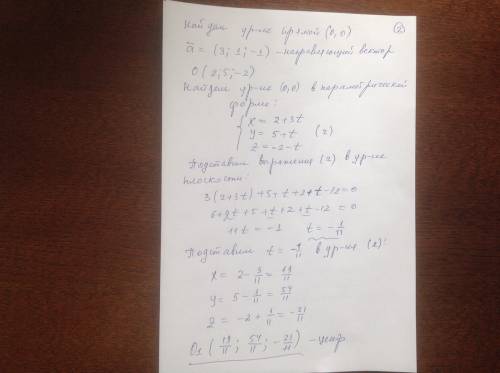 Найдем ур-ие прямой (O₁O) (2)
ā = (3; 1; -1) - направляющий вектор
O (2; 5; -2)
Найдем ур-ие (O₁O) в параметрической
форме:
{ x = 2+3t
y = 5+t (2)
z = -2-t
Подставим выражения (2) в ур-ие
плоскости:
3(2+3t)+5+t+2+t-12=0
6+9t+5+t+2+t-12=0
11t = -1 t = -1/11
Подставим t = -1/11 в ур-ия (2):
x = 2 - 3/11 = 19/11
y = 5 - 1/11 = 54/11
z = -2 + 1/11 = -21/11
O₁ (19/11; 54/11; -21/11) - центр